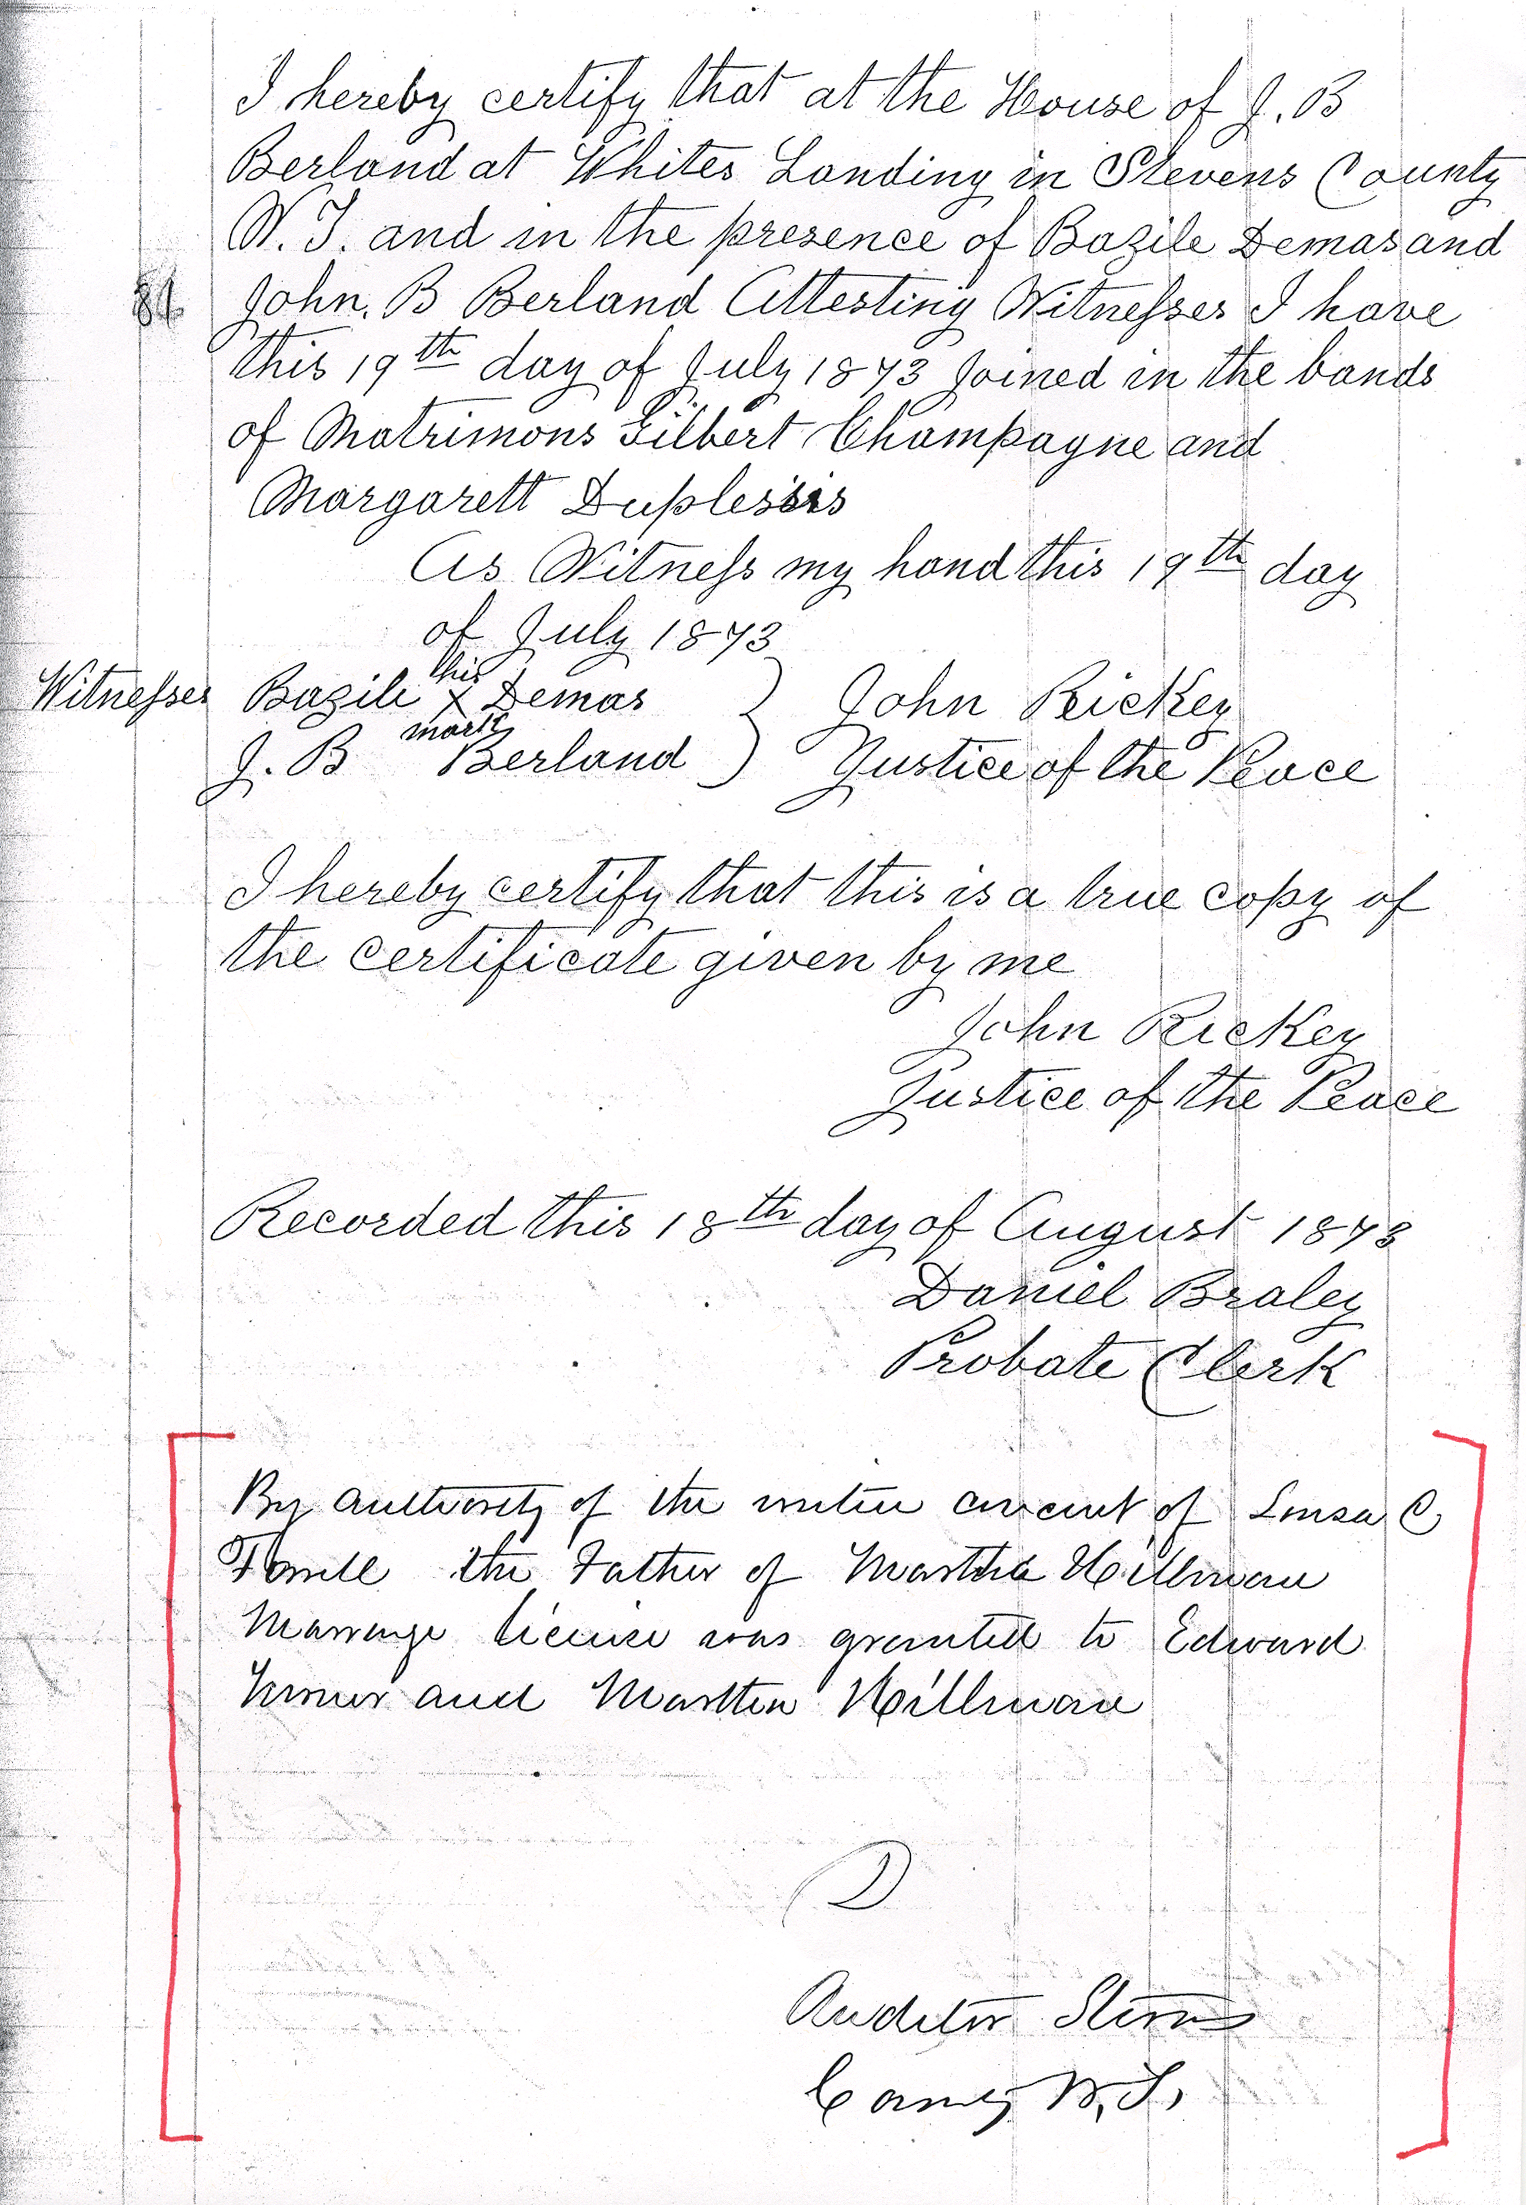 I hereby certify that at the House of J. B
Berland at Whites Landing in Stevens County
W. T. and in the presence of Bazile Demas and
John. B Berland Attesting Witnesses I have
this 19th day of July 1873 Joined in the bands
of Matrimons Gilbert Champagne and
Margarett Duplessis
As Witness my hand this 19th day
of July 1873
Witnesses Bazile his X mark Demas John Rickey
J. B Berland Justice of the Peace
I hereby certify that this is a true copy of
the certificate given by me
John Rickey
Justice of the Peace
Recorded this 18th day of August 1873
Daniel Braley
Probate Clerk
By authority of the written consent of C
the Father of Martha Hillman
Marriage license was granted to Edward
and Martha Hillman
Auditor Stevens
County W. T.